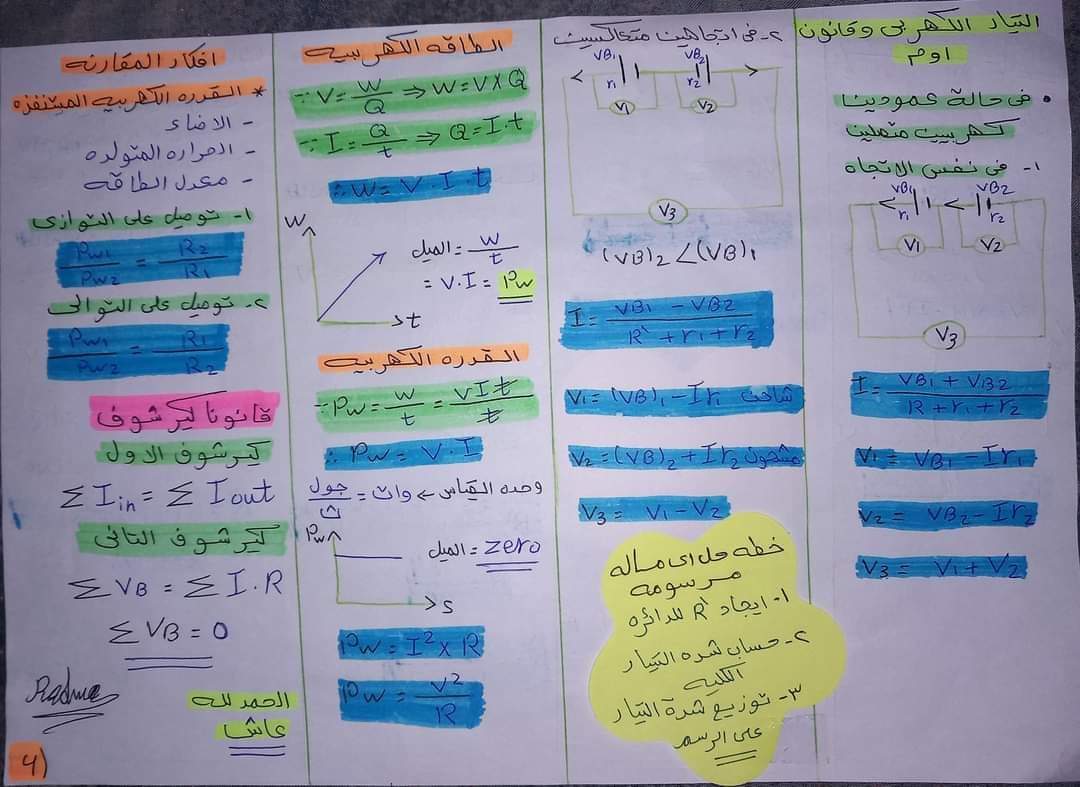 التيار الكهربى وقانون
اوم
• فى حالة عمودين
كهربيين متصلين
١- فى نفس الاتجاه
VB1 VB2
r1 r2
V1 V2
V3
I = VB1 + VB2 / R + r1 + r2
V1 = VB1 - Ir1
V2 = VB2 - Ir2
V3 = V1 + V2
٢- فى اتجاهين متعاكسين
VB1 VB2
r1 r2
V1 V2
V3
(VB)2 < (VB)1
I = VB1 - VB2 / R` + r1 + r2
V1 = (VB)1 - Ir1 شاحن
V2 = (VB)2 + Ir2 مشحون
V3 = V1 - V2
خطه حل اى مساله
مرسومه
١- ايجاد R` للدائره
٢- حساب شده التيار
الكليه
٣- توزيع شدة التيار
على الرسم
الطاقه الكهربيه
∵ V = W / Q ⇒ W = V × Q
∵ I = Q / t ⇒ Q = I . t
∴ W = V . I . t
W
الميل = W / t
= V . I = Pw
t
القدره الكهربيه
∵ Pw = W / t = V I t / t
∴ Pw = V . I
وحده القياس ← وات = جول / ث
Pw
الميل = zero
s
Pw = I² × R
Pw = V² / R
افكار المقارنه
* القدره الكهربيه المستنفزه
- الاضاء
- الحراره المتولده
- معدل الطاقه
١- توصيل على التوازى
Pw1 / Pw2 = R2 / R1
٢- توصيل على التوالى
Pw1 / Pw2 = R1 / R2
قانونا كيرشوف
كيرشوف الاول
Σ Iin = Σ Iout
كيرشوف التانى
Σ VB = Σ I . R
Σ VB = 0
الحمد لله
عاشا
4)